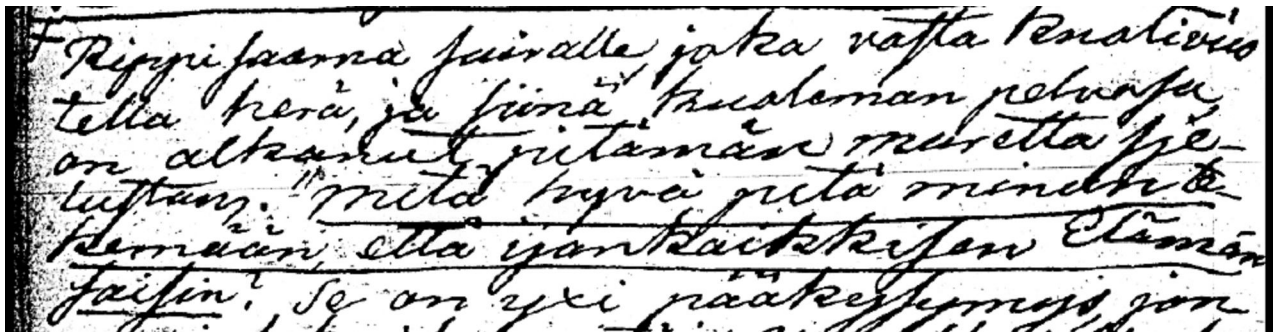 Rippi saarna sairalle, joka vasta kuolivuo
tella herä, ja siinä kuoleman pelvosa,
on alkanut pitämän muretta sje-
lustans. "Mitä hyvä pitä minun te-
kemään, että ijankaikkisen Elämän
saisin? Se on yxi pääkysymys, jon